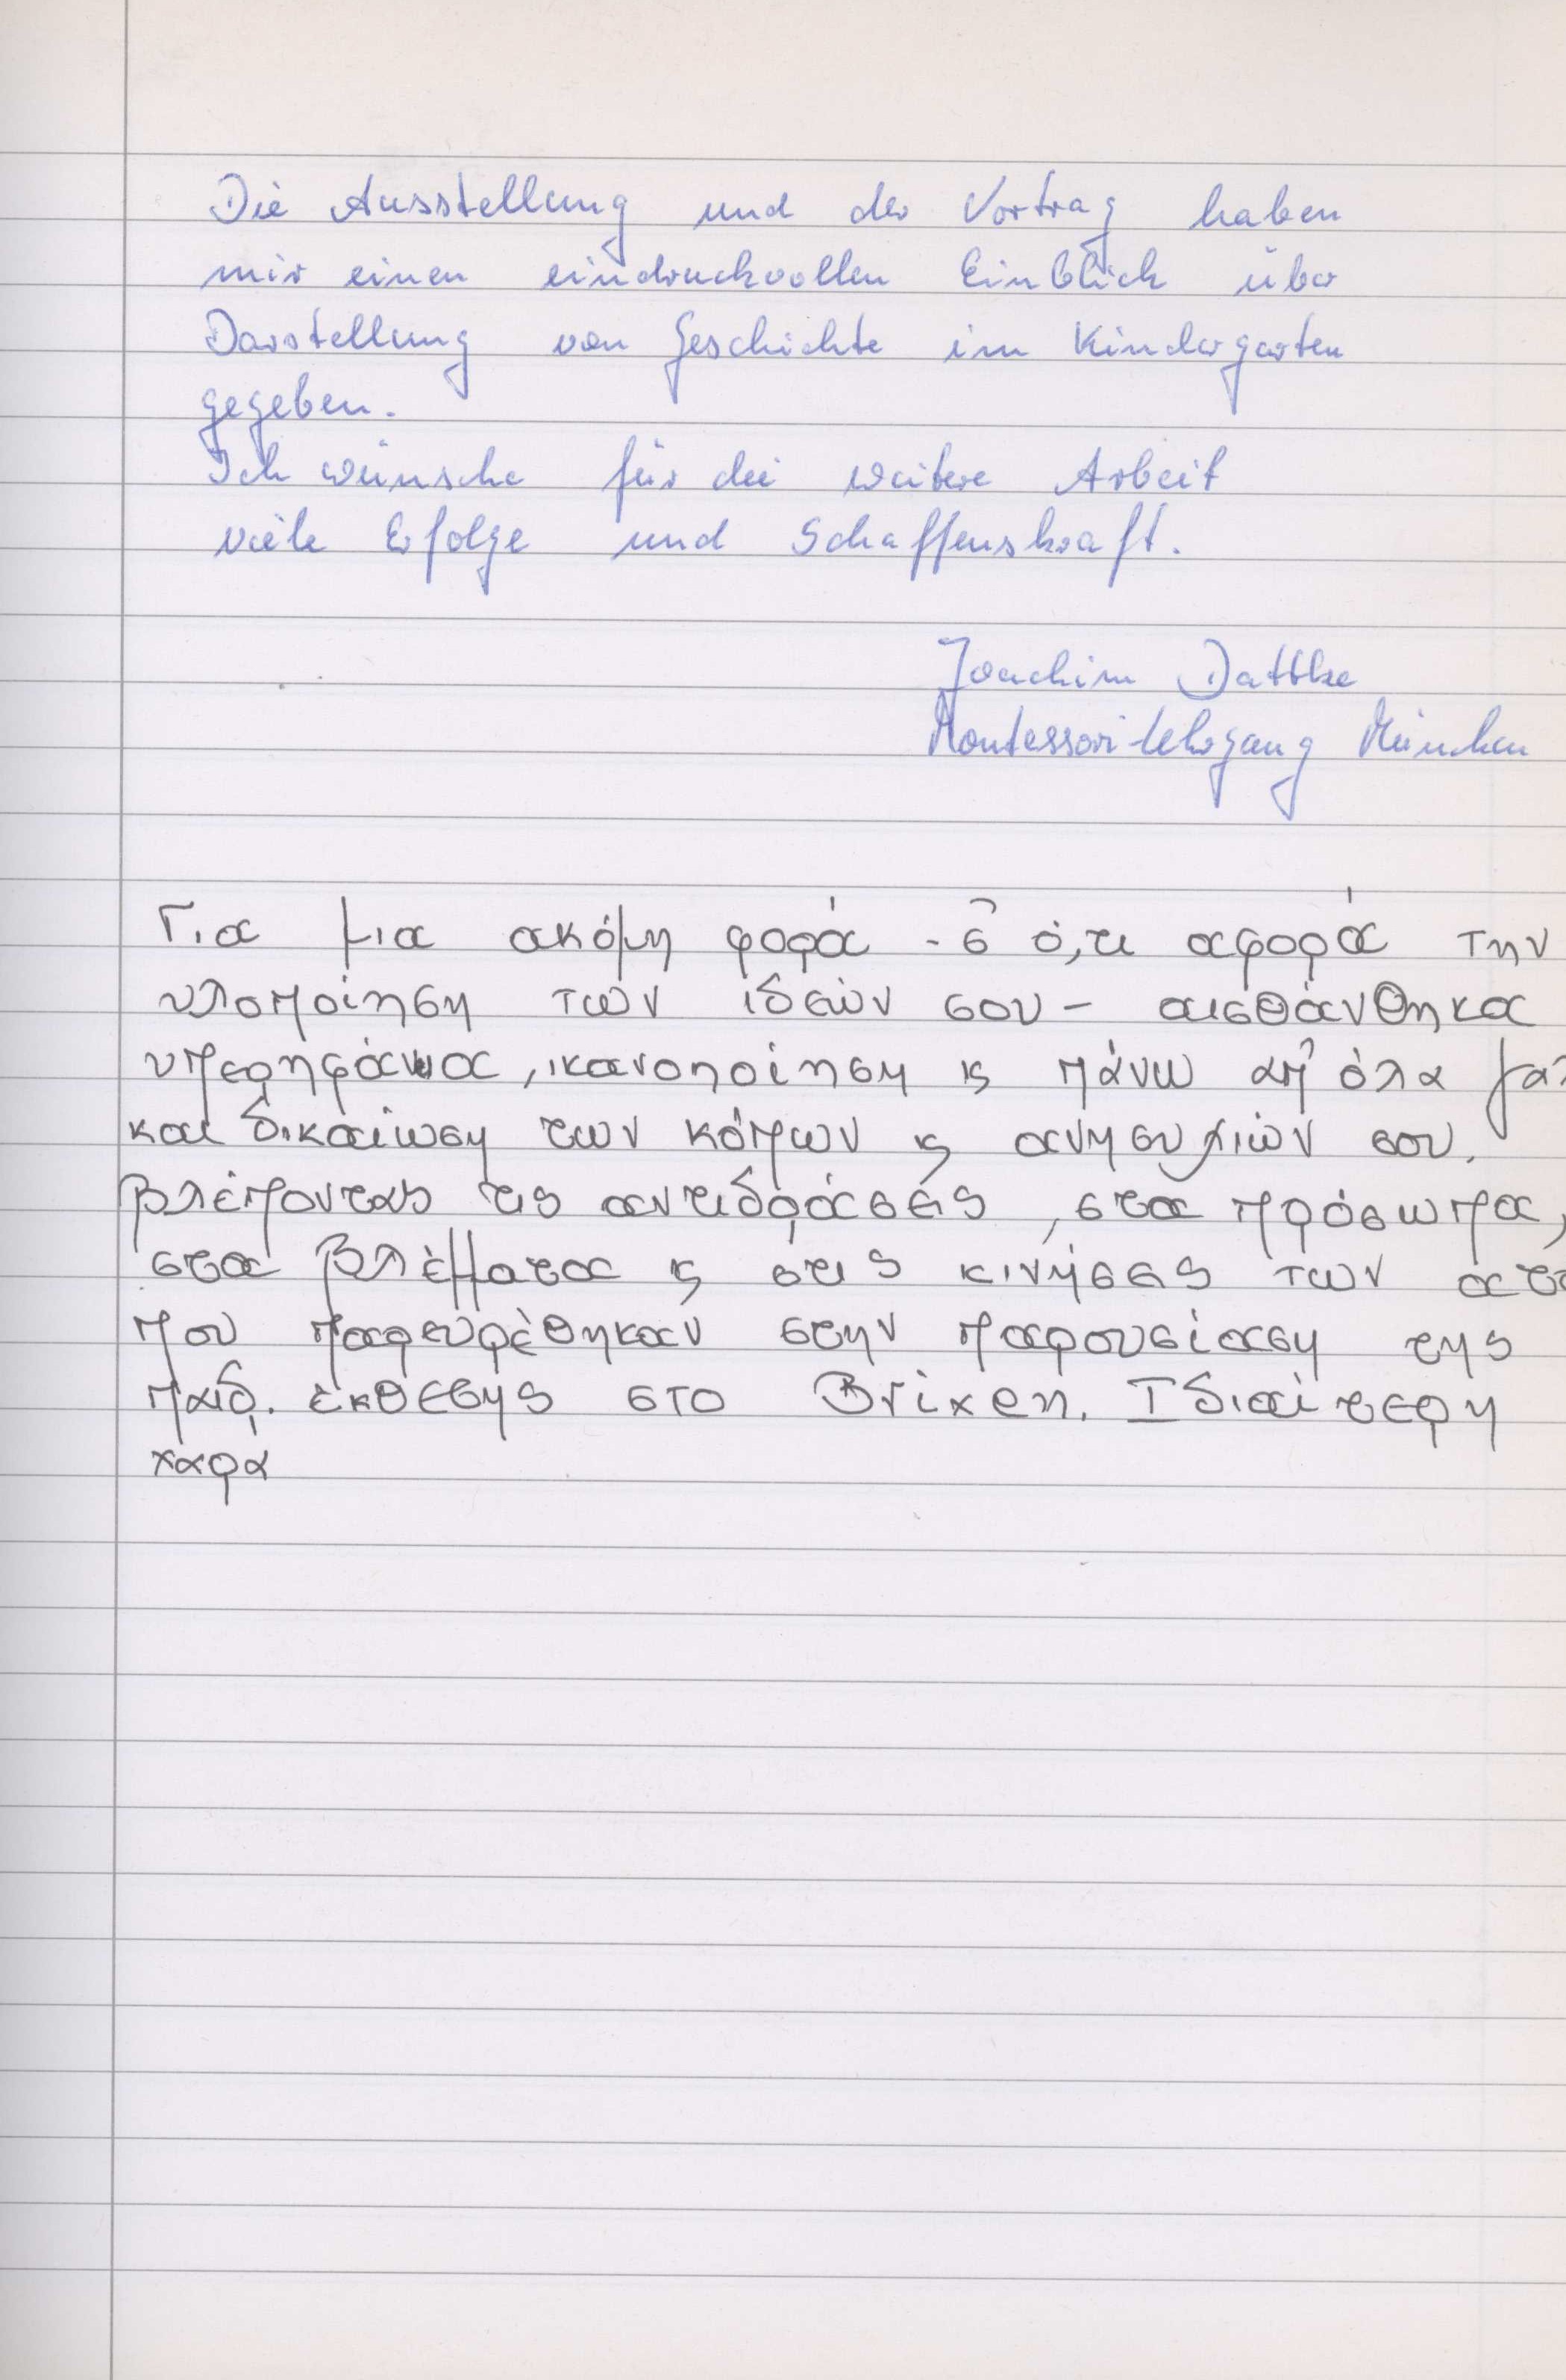 Die Ausstellung und der Vortrag haben
mir einen eindruckvollen Einblick über
Darstellung von Geschichte im Kindergarten
gegeben.
Ich wünsche für die weitere Arbeit
viele Erfolge und Schaffenskraft.
Joachim Dattke
Montessori-Lehrgang München
Για μια ακόμη φορά - σ' ό,τι αφορά την
υλοποίηση των ιδεών σου - αισθάνθηκα
υπερηφάνια, ικανοποίηση κ πάνω απ' όλα
και δικαίωση των κόπων κ ανησυχιών σου.
Βλέποντας τις αντιδράσεις, στα πρόσωπα,
στα βλέμματα κ στις κινήσεις των
που παρευρέθηκαν στην παρουσίαση της
παιδ. έκθεσης στο Brixen. Ιδιαίτερη
χαρά